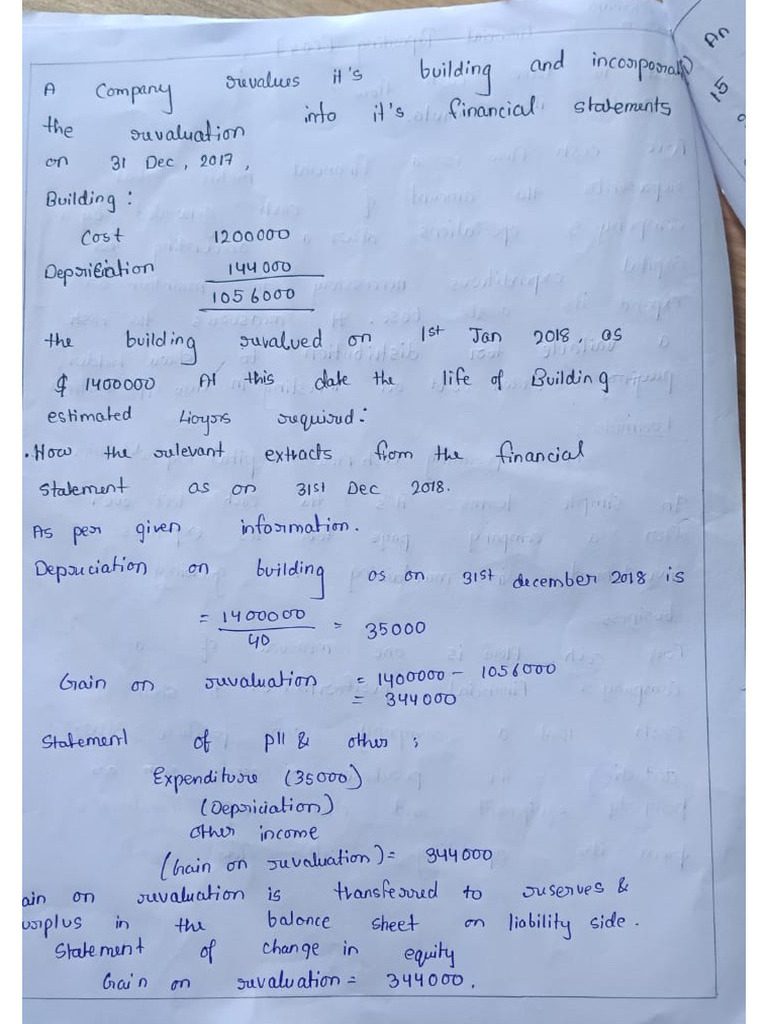 A Company revalues it's building and incorporates
the revaluation into it's financial statements
on 31 Dec, 2017,
Building :
Cost 1200000
Depriciation 144000
1056000
the building revalued on 1st Jan 2018, as
$ 1400000 At this date the life of Building
estimated 40yrs required :
. How the relevant extracts from the financial
statement as on 31st Dec 2018.
As per given information.
Depreciation on building as on 31st december 2018 is
= 1400000 / 40 = 35000
Gain on revaluation = 1400000 - 1056000
= 344000
Statement of pll & other ;
Expenditure (35000)
(Depriciation)
other income
(Gain on revaluation) = 344000
ain on revaluation is transferred to reserves &
urplus in the balance sheet on liability side.
Statement of change in equity
Gain on revaluation = 344000.
An
15